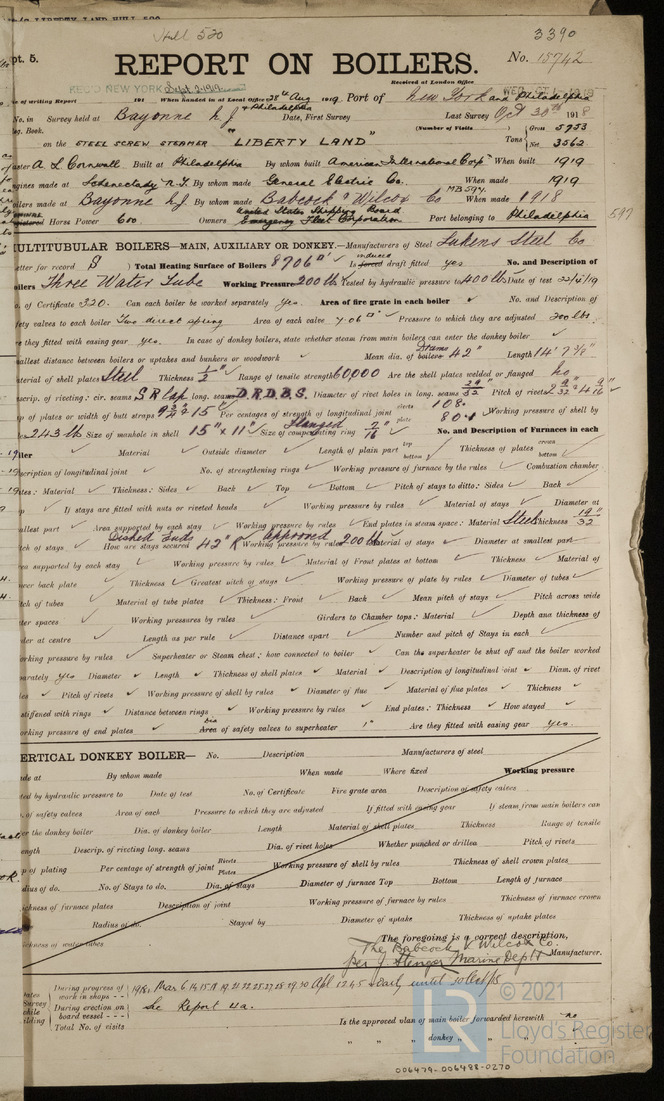 Hull 520
3390
pt. 5.
REPORT ON BOILERS.
No. 15742
Received at London Office
REC'D NEW YORK Sept. 2. 1919
of writing Report 191 When handed in at Local Office 28th Aug 1919 Port of New York and Philadelphia
No. in Survey held at Bayonne N.J. & Philadelphia Date, First Survey Last Survey Oct 30th 1918
Reg. Book. (Number of Visits)
on the STEEL SCREW STEAMER "LIBERTY LAND" Tons Gross 5933 Net 3562
aster A L Cornwall Built at Philadelphia By whom built American International Corp. When built 1919
gines made at Schenectady N.Y. By whom made General Electric Co. When made 1919
made at Bayonne N.J. By whom made Babcock & Wilcox Co MB 597. When made 1918
Horse Power 600 Owners United States Shipping Board Emergency Fleet Corporation Port belonging to Philadelphia
597
MULTITUBULAR BOILERS—MAIN, AUXILIARY OR DONKEY.—Manufacturers of Steel Lukens Steel Co
etter for record S Total Heating Surface of Boilers 8706 Is forced induced draft fitted yes No. and Description of
oilers Three Water Tube Working Pressure 200 lbs Tested by hydraulic pressure to 400 lbs Date of test
o. of Certificate 320. Can each boiler be worked separately yes. Area of fire grate in each boiler No. and Description of
fety valves to each boiler Two direct spring Area of each valve 7.06 Pressure to which they are adjusted 200 lbs.
e they fitted with easing gear yes. In case of donkey boilers, state whether steam from main boilers can enter the donkey boiler
allest distance between boilers or uptakes and bunkers or woodwork Mean dia. of boilers 42" Length 14' 7 3/8"
aterial of shell plates Steel Thickness 1/2" Range of tensile strength 60,000 Are the shell plates welded or flanged no
scrip. of riveting: cir. seams S R lap long. seams D.R.D.B.S. Diameter of rivet holes in long. seams 29/32 Pitch of rivets
p of plates or width of butt straps Per centages of strength of longitudinal joint rivets 108. plate 80.1 Working pressure of shell by
les 243 lb Size of manhole in shell 15" x 11" Size of compensating ring Flanged 7/16" No. and Description of Furnaces in each
iler Material Outside diameter Length of plain part top bottom Thickness of plates crown bottom
scription of longitudinal joint No. of strengthening rings Working pressure of furnace by the rules Combustion chamber
tes: Material Thickness: Sides Back Top Bottom Pitch of stays to ditto: Sides Back
p If stays are fitted with nuts or riveted heads Working pressure by rules Material of stays Diameter at
allest part Area supported by each stay Working pressure by rules End plates in steam space: Material Steel Thickness 19/32"
tch of stays How are stays secured Dished Ends 42" R Working pressure by rules Approved 200 lbs Material of stays Diameter at smallest part
ea supported by each stay Working pressure by rules Material of Front plates at bottom Thickness Material of
wer back plate Thickness Greatest pitch of stays Working pressure of plate by rules Diameter of tubes
tch of tubes Material of tube plates Thickness: Front Back Mean pitch of stays Pitch across wide
ter spaces Working pressures by rules Girders to Chamber tops: Material Depth and thickness of
der at centre Length as per rule Distance apart Number and pitch of Stays in each
orking pressure by rules Superheater or Steam chest; how connected to boiler Can the superheater be shut off and the boiler worked
parately yes Diameter Length Thickness of shell plates Material Description of longitudinal joint Diam. of rivet
les Pitch of rivets Working pressure of shell by rules Diameter of flue Material of flue plates Thickness
stiffened with rings Distance between rings Working pressure by rules End plates: Thickness How stayed
orking pressure of end plates Area of safety valves to superheater dia 1" Are they fitted with easing gear yes.
ERTICAL DONKEY BOILER— No. Description Manufacturers of steel
ade at By whom made When made Where fixed Working pressure
ted by hydraulic pressure to Date of test No. of Certificate Fire grate area Description of safety valves
. of safety valves Area of each Pressure to which they are adjusted If fitted with easing gear If steam from main boilers can
er the donkey boiler Dia. of donkey boiler Length Material of shell plates Thickness Range of tensile
ength Descrip. of riveting long. seams Dia. of rivet holes Whether punched or drilled Pitch of rivets
p of plating Per centage of strength of joint Rivets Plates Working pressure of shell by rules Thickness of shell crown plates
dius of do. No. of Stays to do. Dia. of stays Diameter of furnace Top Bottom Length of furnace
ickness of furnace plates Description of joint Working pressure of furnace by rules Thickness of furnace crown
Radius of do. Stayed by Diameter of uptake Thickness of uptake plates
ickness of water tubes
The foregoing is a correct description,
The Babcock & Wilcox Co.
per J. Stenger Marine Dept Manufacturer.
During progress of work in shops - - 1918: Mar 6. 14, 15, 18 19, 21 22 25, 27, 28, 29, 30 Apl 1, 2, 4, 5 & early until 30 Oct/18
During erection on board vessel - - - See Report 4a.
Total No. of visits
Is the approved plan of main boiler forwarded herewith no
" " " donkey " " "
© 2021
LR
Lloyd's Register
Foundation
006479-006488-0270